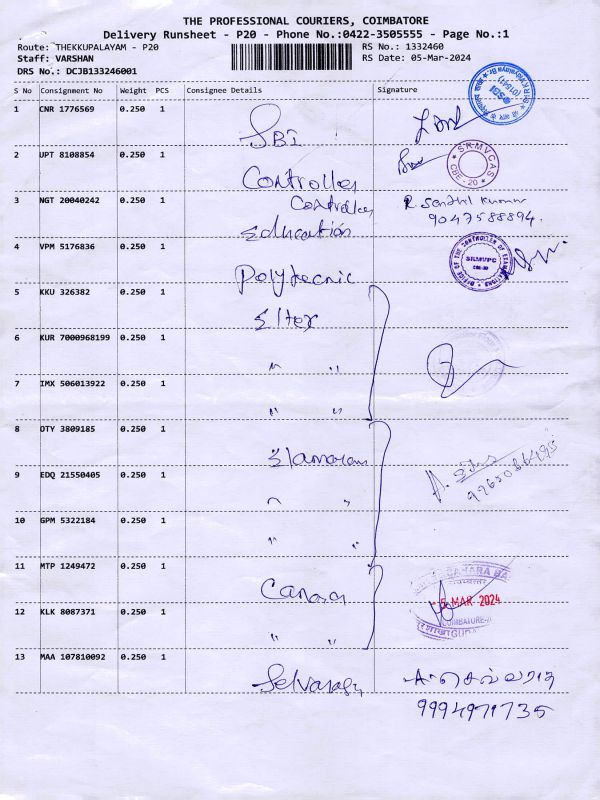 THE PROFESSIONAL COURIERS, COIMBATORE
Delivery Runsheet - P20 - Phone No.:0422-3505555 - Page No.:1
Route: THEKKUPALAYAM - P20 RS No.: 1332460
Staff: VARSHAN RS Date: 05-Mar-2024
DRS No.: DCJB133246001
S No Consignment No Weight PCS Consignee Details Signature
1 CNR 1776569 0.250 1 SBI
2 UPT 8108854 0.250 1 Controller
SRMVCAS
CBE - 20
3 NGT 20040242 0.250 1 Controller R. Senthil Kumar
Education 9047588894.
4 VPM 5176836 0.250 1 Polytecnic
OFFICE OF THE CONTROLLER OF EXAMINATIONS
SRMVPC
CBE-20
5 KKU 326382 0.250 1 Elter
6 KUR 7000968199 0.250 1 " "
7 IMX 506013922 0.250 1 " "
8 OTY 3809185 0.250 1 Elamaran
9 EDQ 21550405 0.250 1 " "
10 GPM 5322184 0.250 1 " "
11 MTP 1249472 0.250 1 Canara
MAR 2024
COIMBATORE
12 KLK 8087371 0.250 1 " "
13 MAA 107810092 0.250 1 Selvaraju A. செல்வராஜ
9994971735